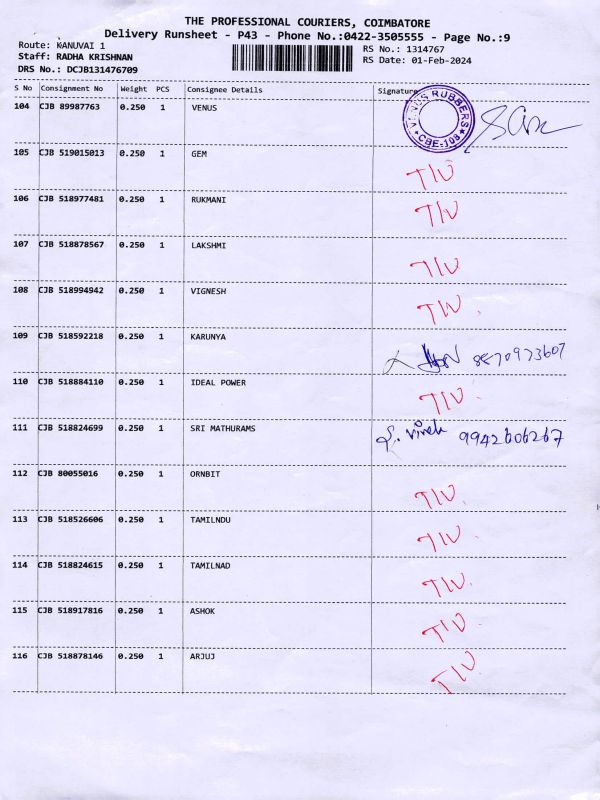 THE PROFESSIONAL COURIERS, COIMBATORE
Delivery Runsheet - P43 - Phone No.:0422-3505555 - Page No.:9
Route: KANUVAI 1 RS No.: 1314767
Staff: RADHA KRISHNAN RS Date: 01-Feb-2024
DRS No.: DCJB131476709
S No Consignment No Weight PCS Consignee Details Signature
104 CJB 89987763 0.250 1 VENUS VENUS RUBBERS CBE-108
105 CJB 519015013 0.250 1 GEM TIU
106 CJB 518977481 0.250 1 RUKMANI TIU
107 CJB 518878567 0.250 1 LAKSHMI TIU
108 CJB 518994942 0.250 1 VIGNESH TIU
109 CJB 518592218 0.250 1 KARUNYA 8870973607
110 CJB 518884110 0.250 1 IDEAL POWER TIU
111 CJB 518824699 0.250 1 SRI MATHURAMS S. Vivek 9942606267
112 CJB 80055016 0.250 1 ORNBIT TIU
113 CJB 518526606 0.250 1 TAMILNDU TIU
114 CJB 518824615 0.250 1 TAMILNAD TIU
115 CJB 518917816 0.250 1 ASHOK TIU
116 CJB 518878146 0.250 1 ARJUJ TIU